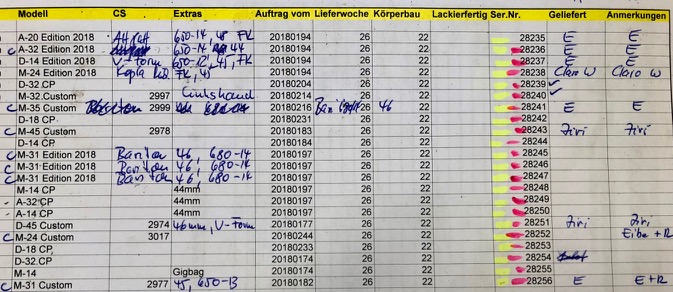 Modell CS Extras Auftrag vom Lieferwoche Körperbau Lackierfertig Ser.Nr. Geliefert Anmerkungen
A-20 Edition 2018 650-14, 45 FK 20180194 26 22 28235 E E
C A-32 Edition 2018 650-14 44 20180194 26 22 28236 E E
D-14 Edition 2018 V-Form 650-12, 45, FK 20180194 26 22 28237 E E
M-24 Edition 2018 Kopla FK, 45 20180194 26 22 28238 Claro W Claro W
D-32 CP 20180204 26 22 28239 ✓
M-32 Custom 2997 Linkshand 20180214 26 22 28240 ✓
C M-35 Custom 2999 20180216 Bariton 26 46 22 28241 E E
D-18 CP 20180231 26 22 28242
C M-45 Custom 2978 20180183 26 22 28243 Ziri Ziri
D-14 CP 20180184 26 22 28244
C M-31 Edition 2018 Bariton 46, 680-14 20180197 26 22 28245
C M-31 Edition 2018 Bariton 46, 680-14 20180197 26 22 28246
C M-31 Edition 2018 Bariton 46, 680-14 20180197 26 22 28247
M-14 CP 44mm 20180197 26 22 28248
A-32 CP 44mm 20180197 26 22 28249
A-14 CP 44mm 20180197 26 22 28250
D-45 Custom 2974 46mm, V-Form 20180177 26 22 28251 Ziri Ziri
C M-24 Custom 3017 20180244 26 22 28252 Eibe + R
D-18 CP, 20180233 26 22 28253
D-32 CP 20180174 26 22 28254
M-14 Gigbag 20180174 26 22 28255
C M-31 Custom 2977 45, 650-13 20180182 26 22 28256 E E+R